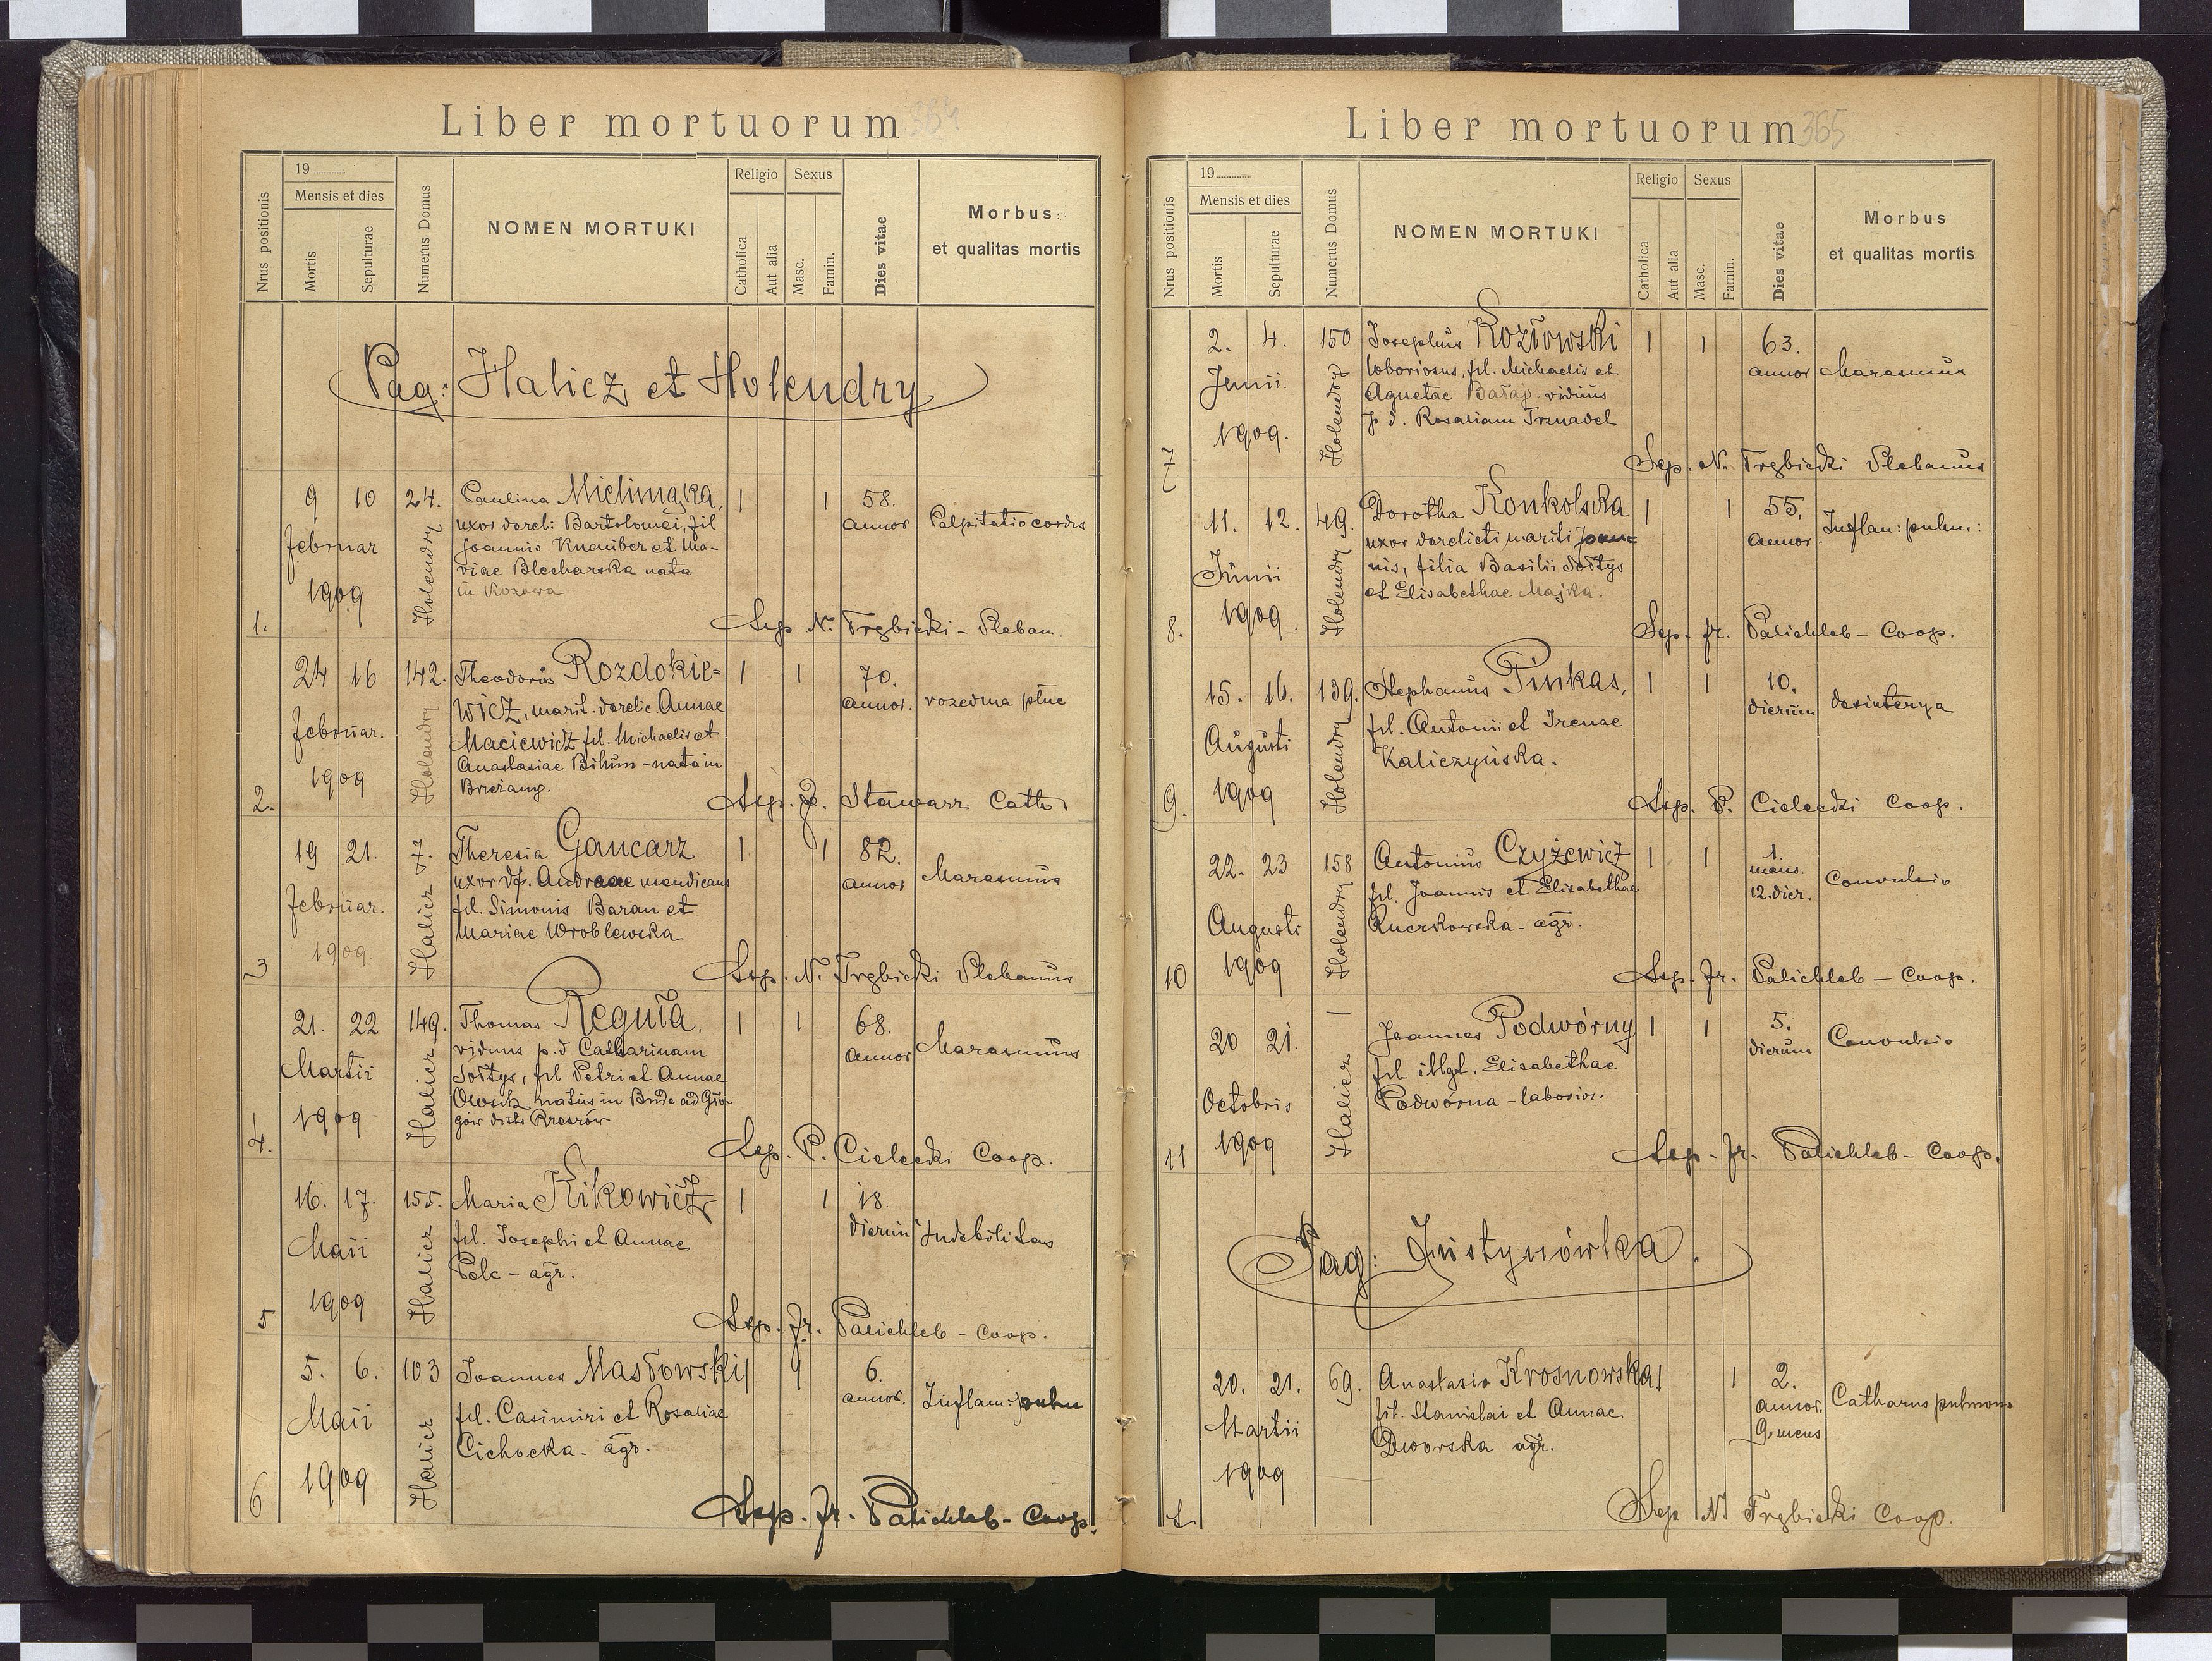 Liber mortuorum 364
Nrus positionis
19
Mensis et dies
Mortis
Sepulturae
Numerus Domus
NOMEN MORTUKI
Religio
Catholica
Aut alia
Sexus
Masc.
Famin.
Dies vitae
Morbus
et qualitas mortis
Pag: Halicz et Holendry
1.
9 10
Februar
1909
24.
Holendry
Paulina
uxor derel: Bartolomei, fil
Joannis Knauber et Ma-
riae Blecharska nata
in Kozowa
1 1
58.
annor
Palpitatio cordis
Sep. N. Trębicki - Pleban.
2.
24 16
Februar.
1909
142.
Holendry
Theodorus Rozdokie-
wicz, marit. derelic Annae
Maciewicz fil. Michaelis et
Anastasiae Bihun - nata in
Brieżany.
1 1
70.
annor.
Sep. J. Stawarz Cath.
3
19 21.
Februar.
1909
7.
Halicz
Theresia Gancarz
uxor Df. Andreae mendicans
fil. Simonis Baran et
Mariae Wroblewska
1 1
82.
annor
Marasmus
Sep. N. Trębicki Plebanus
4.
21. 22
Martii
1909
149.
Halicz
Thomas Reguła.
viduus p. d Catharinam
Sołtys, fil Petri et Annae
natus in Bude ad Gło
gów distr Rzeszów
1 1
68.
annor
Marasmus
Sep. P. Cielecki Coop.
5
16. 17.
Maii
1909
155.
Halicz
Maria Kikowicz
fil. Josephi et Annae
Pelc - agr.
1 1
18.
dierum
Indebilitas
Sep. Fr. Palichleb - Coop.
6
5. 6.
Maii
1909
103
Halicz
Joannes Masłowski
fil. Casimiri et Rosaliae
Cichocka. agr.
1 1
6.
annor.
Inflam: pulm
Sep. Fr. Palichleb - Coop.
Liber mortuorum 365
Nrus positionis
19
Mensis et dies
Mortis
Sepulturae
Numerus Domus
NOMEN MORTUKI
Religio
Catholica
Aut alia
Sexus
Masc.
Famin.
Dies vitae
Morbus
et qualitas mortis
7
2. 4.
Junii
1909.
150
Holendry
Josephus Kozłowski
laboriosus, fil. Michaelis et
Agnetae Bałaj. viduus
p d. Rosaliam Trznadel
1 1
63.
annor
Marasmus
Sep. N. Trębicki Plebanus
8.
11. 12.
Junii
1909.
49.
Holendry
Dorotha Konkolska
uxor derelicti mariti Joan-
nis, filia Basilii Sołtys
et Elisabethae Majka.
1 1
55.
annor.
Inflan: pulm:
Sep. fr. Palichleb - Coop.
9.
15. 16.
Augusti
1909
139.
Holendry
Stephanus Pinkas,
fil. Antonii et Irenae
Kaliczyńska.
1 1
10.
dierum
desinterya
Sep. P. Cielecki Coop.
10
22. 23
Augusti
1909
158
Holendry
Antonius Czyżewicz
fil. Joannis et Elisabethae
Kuczkowska - agr.
1 1
1.
mens.
12. dier.
Convulsio
Sep. Fr. Palichleb - Coop.
11
20 21.
Octobris
1909
1
Halicz
Joannes Podwórny
fil illgt. Elisabethae
Podwórna - laborios.
1 1
5.
dierum
Convulsio
Sep. Fr. Palichleb - Coop.
Pag: Justynówka.
1
20. 21.
Martii
1909
69.
Anastasia Krosnowska
fil. Stanislai et Annae
Dworska agr.
1 1
2.
annor.
9. mens.
Catharus pulmon.
Sep N. Trębicki Coop.